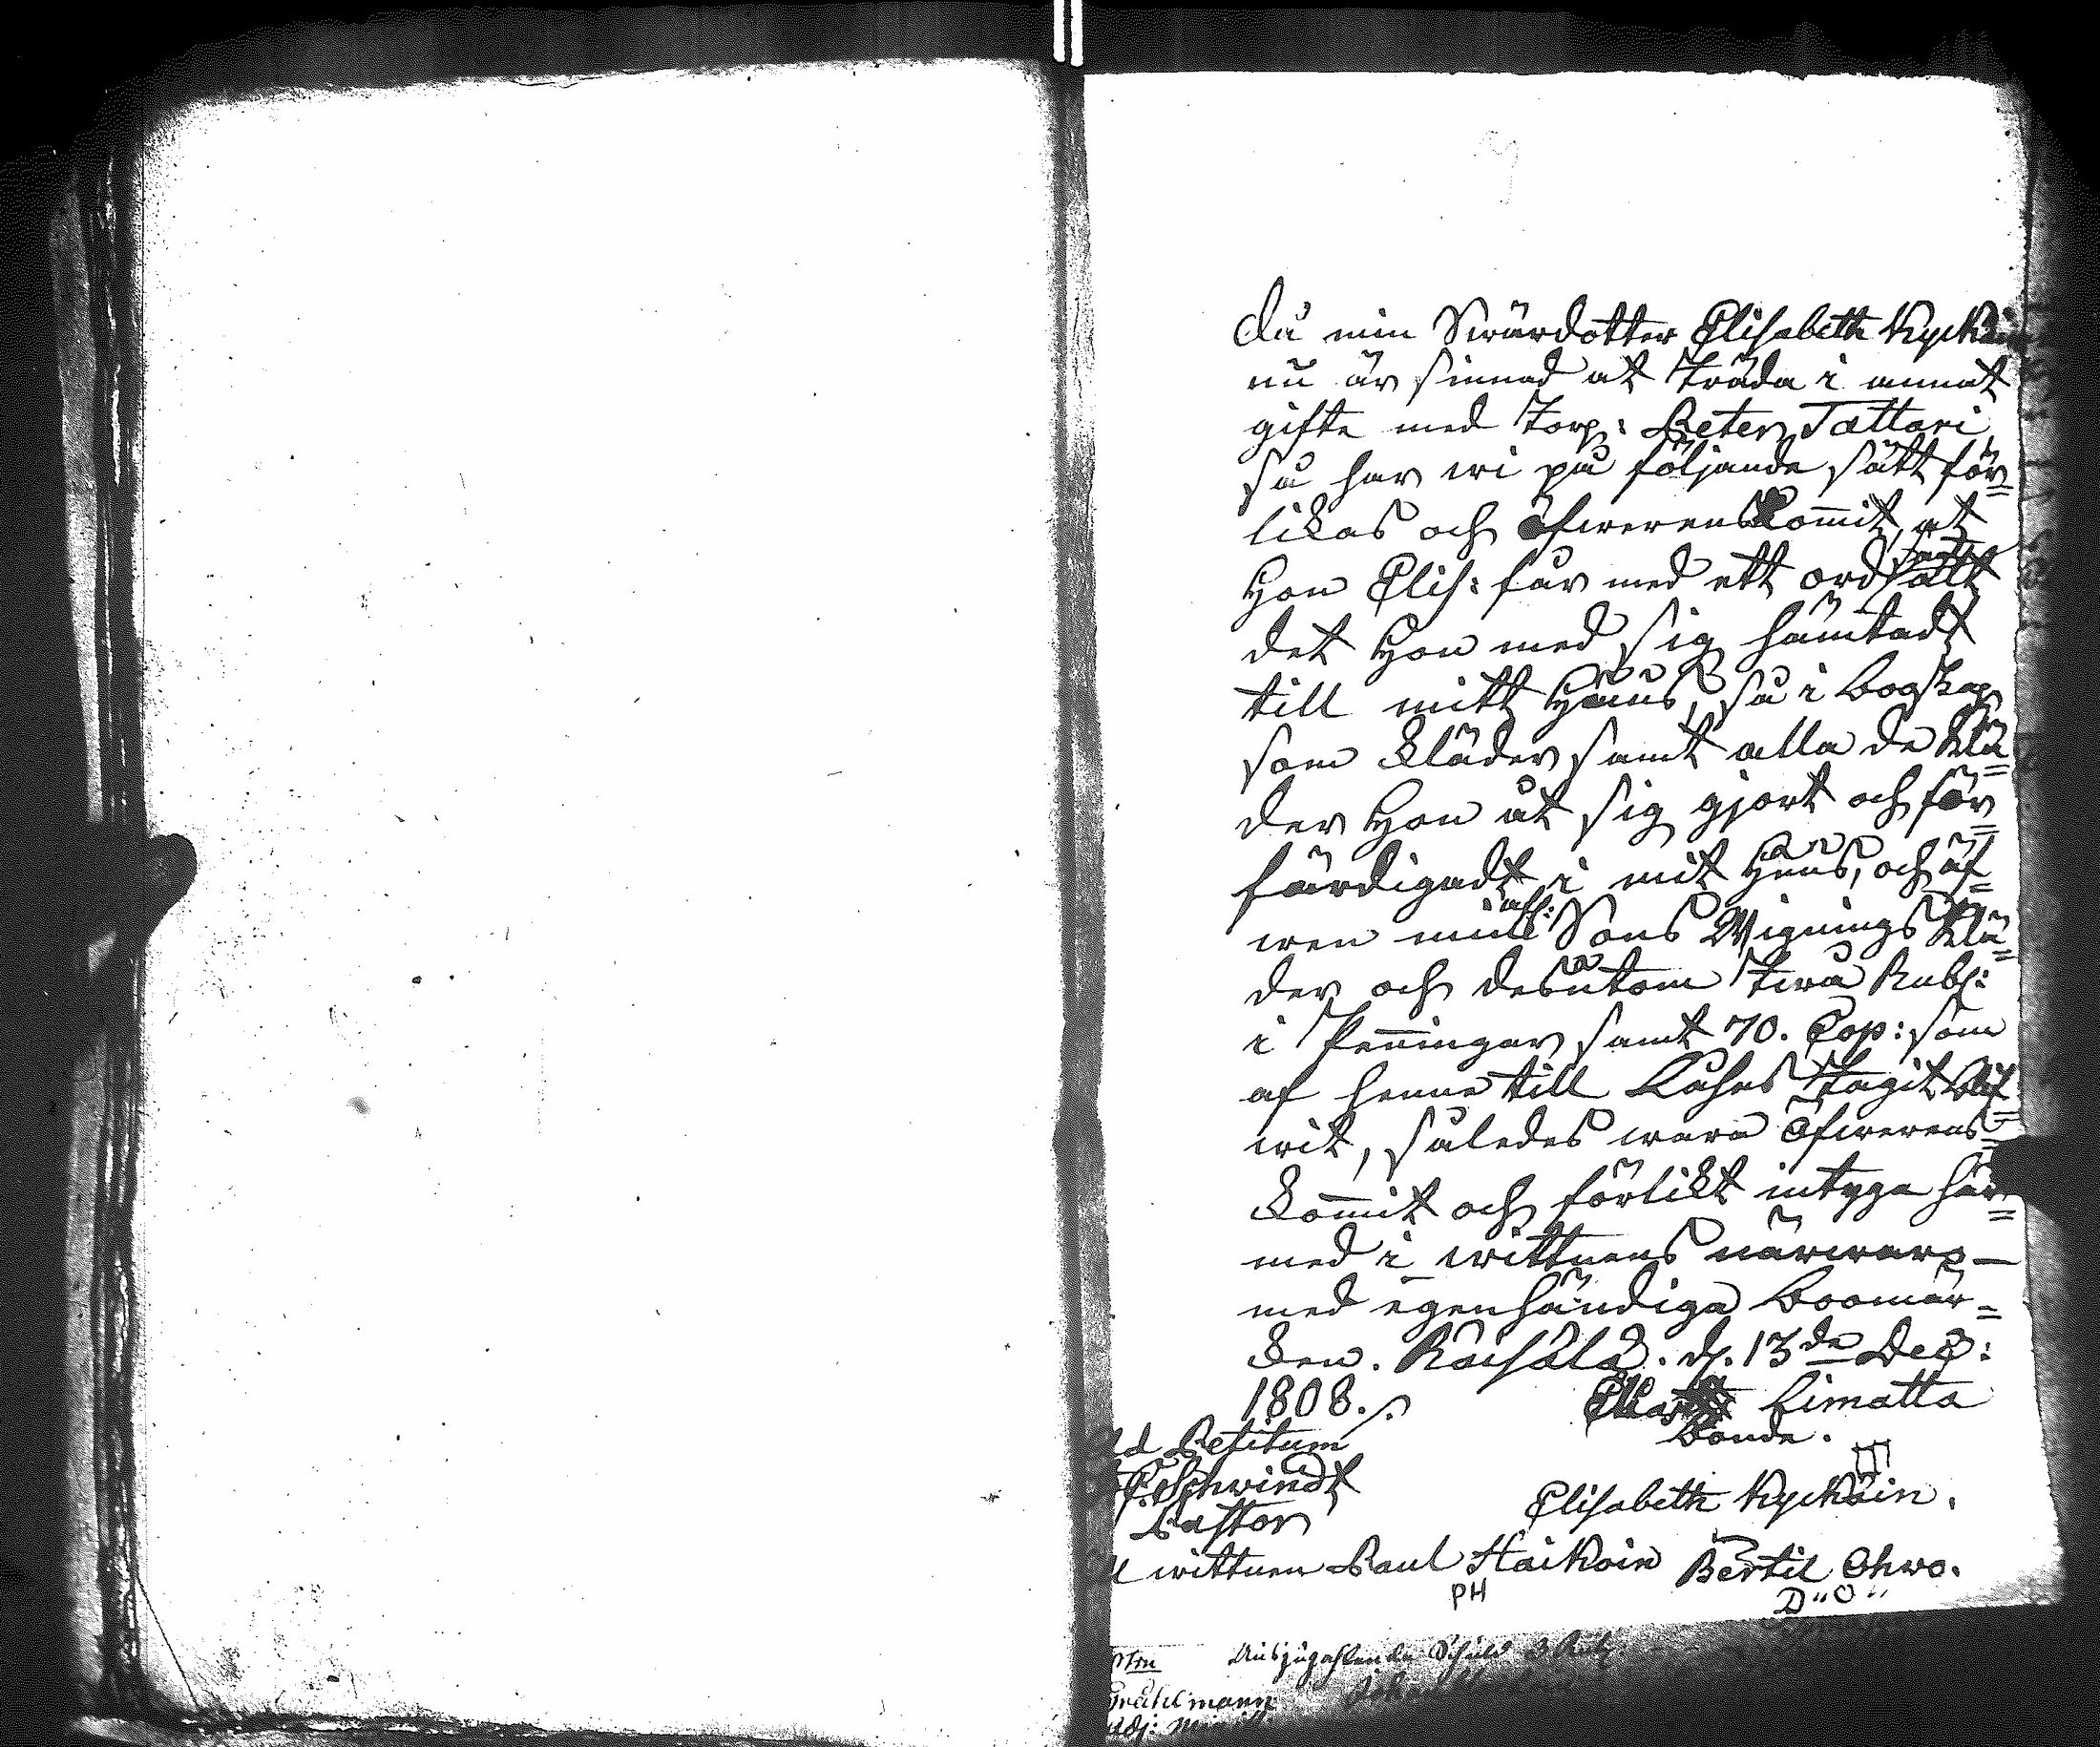 Då min Swärdotter Elisabeth Kycköin
nu är sinnad at träda i annat
gifte med Torp: Peter Tattari
så har wi på följande sätt för=
likas och öfwerenskommit, at
Hon Elis: får med ett ord sagt allt
det Hon med sig hämtadt
till mitt Huus, så i boskap
som kläder samt alla de klä=
der Hon åt sig gjort och för=
färdigadt i mit Huus, och äf=
wen min Sons Wignings klä=
der och desutom twå Rubl:
i Penningar samt 70. Cop: som
af henne till Låhns tagit blif=
wit, således wara öfwerens=
kommit och förlikt intyga här=
med i wittnens närwaro —
med egenhändiga boomär=
ken. Räisälä. d. 13de Dec:
1808.
Limatta
bonde.
Ad Petitum
Schwindt
Pastor
Elisabeth Kycköin.
wittnen Paul Haikoin Bertil Ohwo.
PH D"O"
Auszuzahlende Schuld 3 Rub.